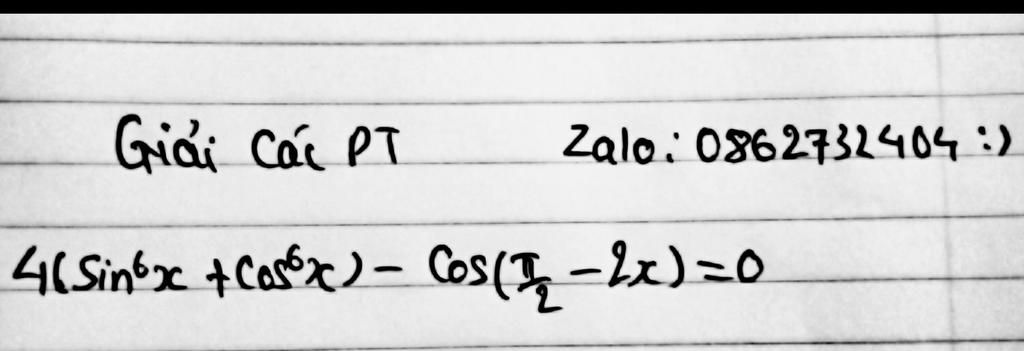 Giải Các PT Zalo: 0862732404 :)
4(Sin⁶x + Cos⁶x) - Cos(π/2 - 2x) = 0